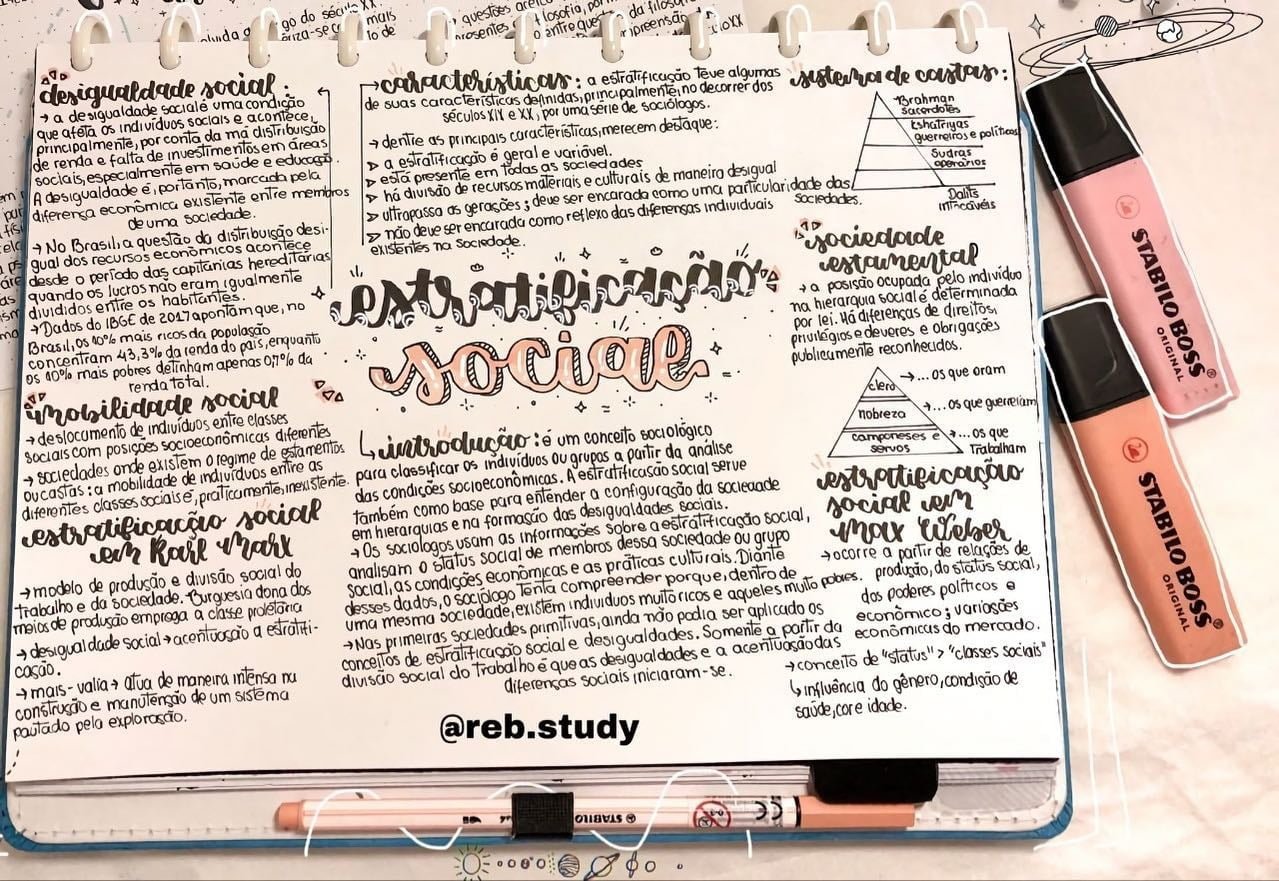 desigualdade social :
→ a desigualdade social é uma condição
que afeta os indivíduos sociais e acontece,
principalmente, por conta da má distribuição
de renda e falta de investimentos em áreas
sociais, especialmente em saúde e educação.
A desigualdade é, portanto, marcada pela
diferença econômica existente entre membros
de uma sociedade.
→ No Brasil, a questão da distribuição desi-
gual dos recursos econômicos acontece
desde o período das capitanias hereditárias
quando os lucros não eram igualmente
divididos entre os habitantes.
→ Dados do IBGE de 2017 apontam que, no
Brasil, os 10% mais ricos da população
concentram 43,3% da renda do país, enquanto
os 10% mais pobres detinham apenas 0,7% da
renda total.
imobilidade social
→ deslocamento de indivíduos entre classes
sociais com posições socioeconômicas diferentes
→ sociedades onde existem o regime de estamentos
ou castas : a mobilidade de indivíduos entre as
diferentes classes sociais é, praticamente, inexistente.
estratificação social
em Karl Marx
→ modelo de produção e divisão social do
trabalho e da sociedade. Burguesia dona dos
meios de produção emprega a classe proletária
→ desigualdade social → acentuação a estratifi-
cação.
→ mais-valia → atua de maneira intensa na
construção e manutenção de um sistema
pautado pela exploração.
características : a estratificação teve algumas
de suas características definidas, principalmente, no decorrer dos
séculos XIX e XX, por uma série de sociólogos.
→ dentre as principais características, merecem destaque:
➤ a estratificação é geral e variável.
➤ está presente em todas as sociedades
➤ há divisão de recursos materiais e culturais de maneira desigual
➤ ultrapassa as gerações ; deve ser encarada como uma particularidade das sociedades.
➤ não deve ser encarada como reflexo das diferenças individuais
existentes na sociedade.
estratificação
social
introdução : é um conceito sociológico
para classificar os indivíduos ou grupos a partir da análise
das condições socioeconômicas. A estratificação social serve
também como base para entender a configuração da sociedade
em hierarquias e na formação das desigualdades sociais.
→ Os sociólogos usam as informações sobre a estratificação social,
analisam o status social de membros dessa sociedade ou grupo
social, as condições econômicas e as práticas culturais. Diante
desses dados, o sociólogo tenta compreender porque, dentro de
uma mesma sociedade, existem indivíduos muito ricos e aqueles muito pobres.
→ Nas primeiras sociedades primitivas, ainda não podia ser aplicado os
conceitos de estratificação social e desigualdades. Somente a partir da
divisão social do trabalho é que as desigualdades e a acentuação das
diferenças sociais iniciaram-se.
@reb.study
sistema de castas :
Brahman
sacerdotes
Kshatriyas
guerreiros e políticos
Sudras
operários
Dalits
intocáveis
sociedade
estamental
→ a posição ocupada pelo indivíduo
na hierarquia social é determinada
por lei. Há diferenças de direitos,
privilégios e deveres e obrigações
publicamente reconhecidos.
clero →... os que oram
nobreza →... os que guerreiam
camponeses e servos →... os que Trabalham
estratificação
social em
Max Weber
→ ocorre a partir de relações de
produção, do status social,
dos poderes políticos e
econômico ; variações
econômicas do mercado.
→ conceito de "status" > "classes sociais"
↳ influência do gênero, condição de
saúde, cor e idade.
STABILO BOSS
ORIGINAL
STABILO BOSS
ORIGINAL
STABILO
CE